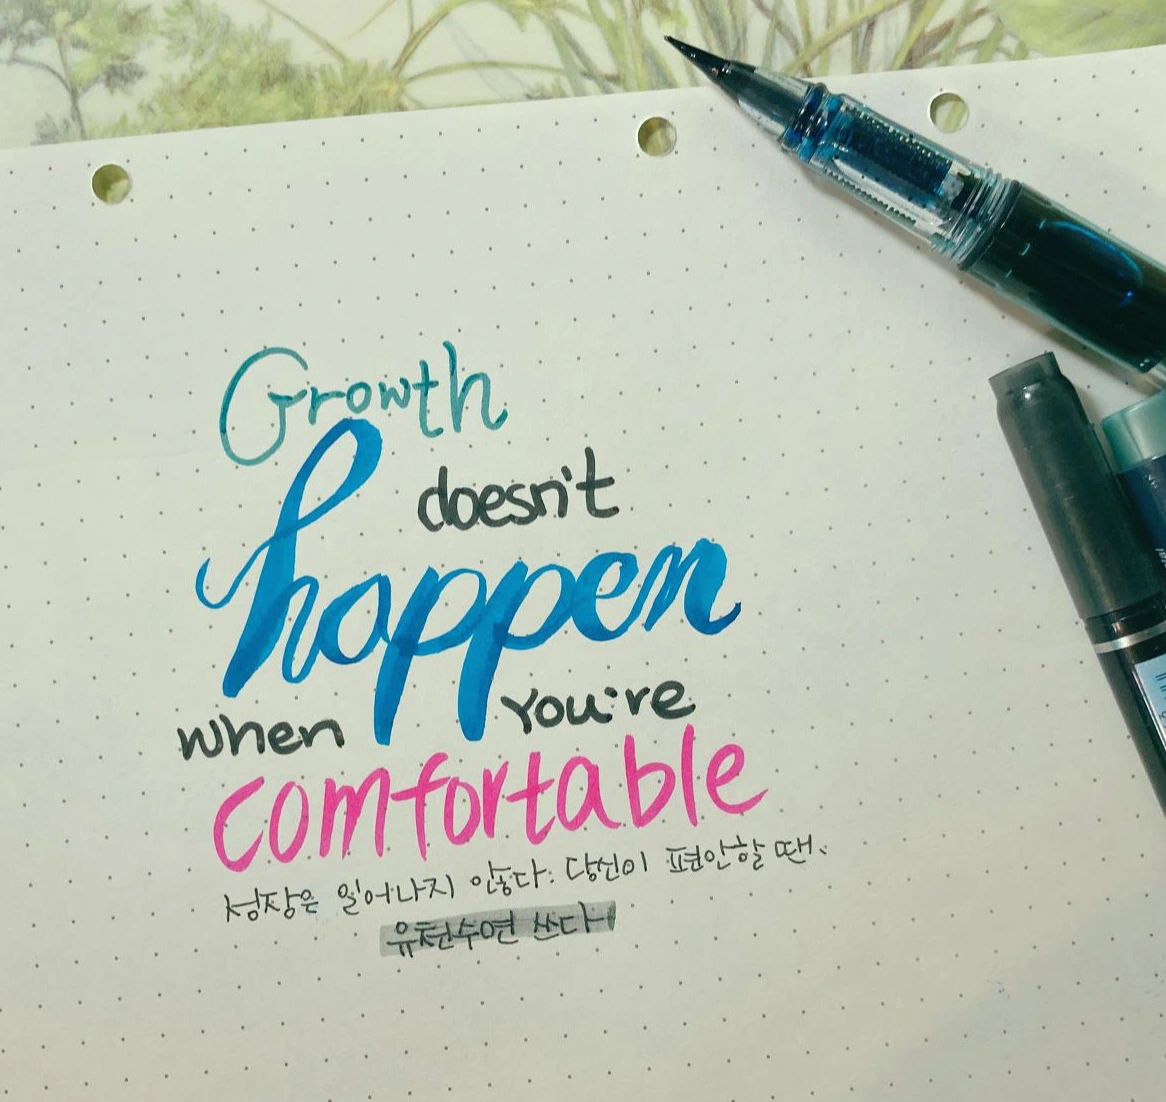 Growth
doesn't
happen
when you're
comfortable
성장은 일어나지 않는다. 당신이 편안할 땐.
유천수연 쓰다